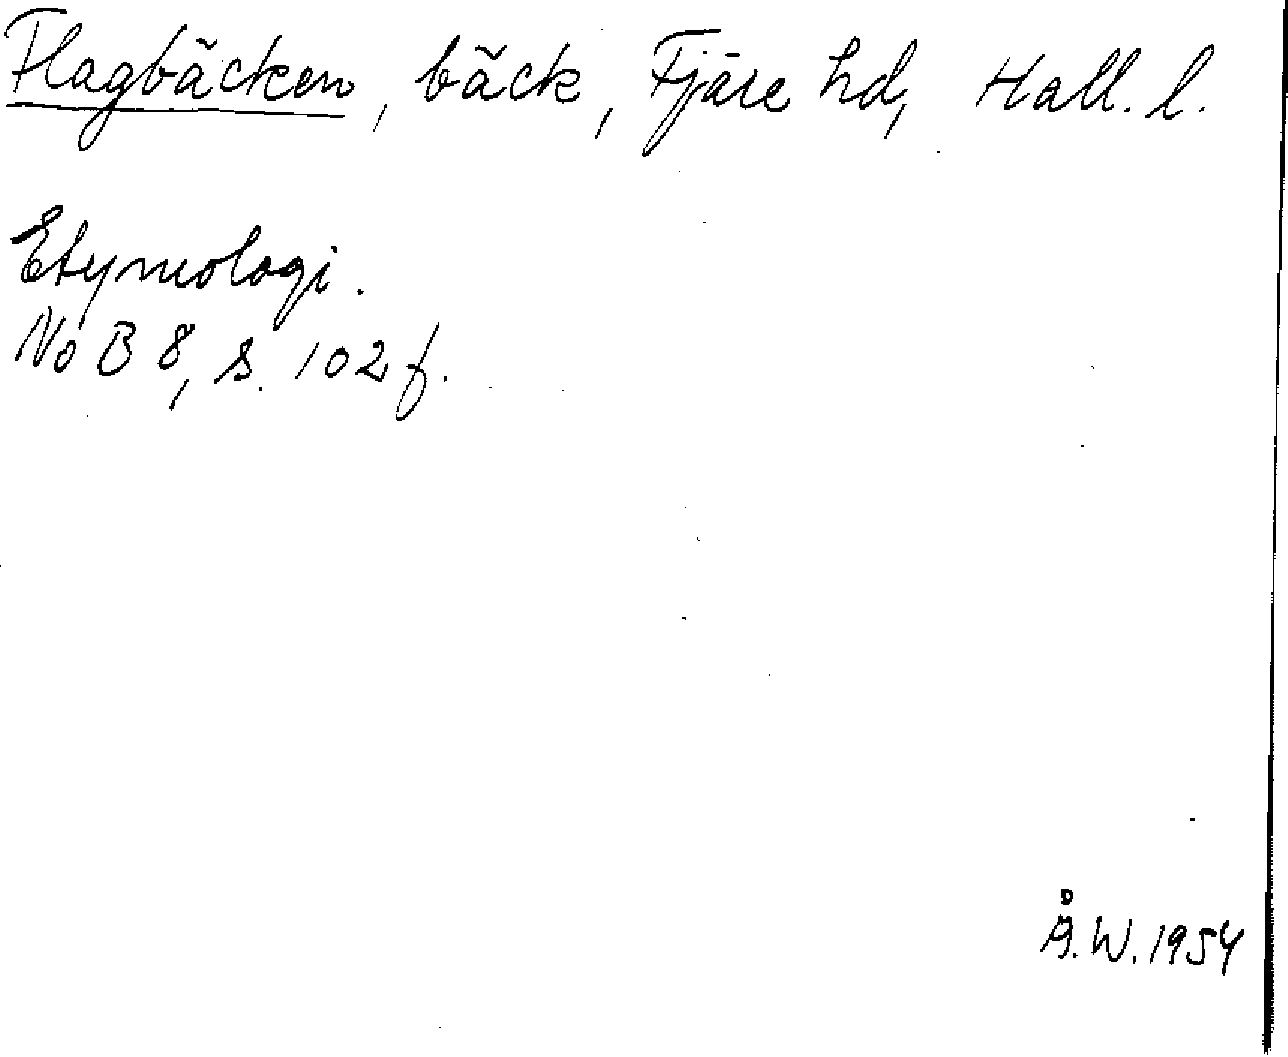 Flagbäcken, bäck, Fjäre hd, Hall. l.
Etymologi.
NoB 8, s. 102 f.
Å.W. 1954